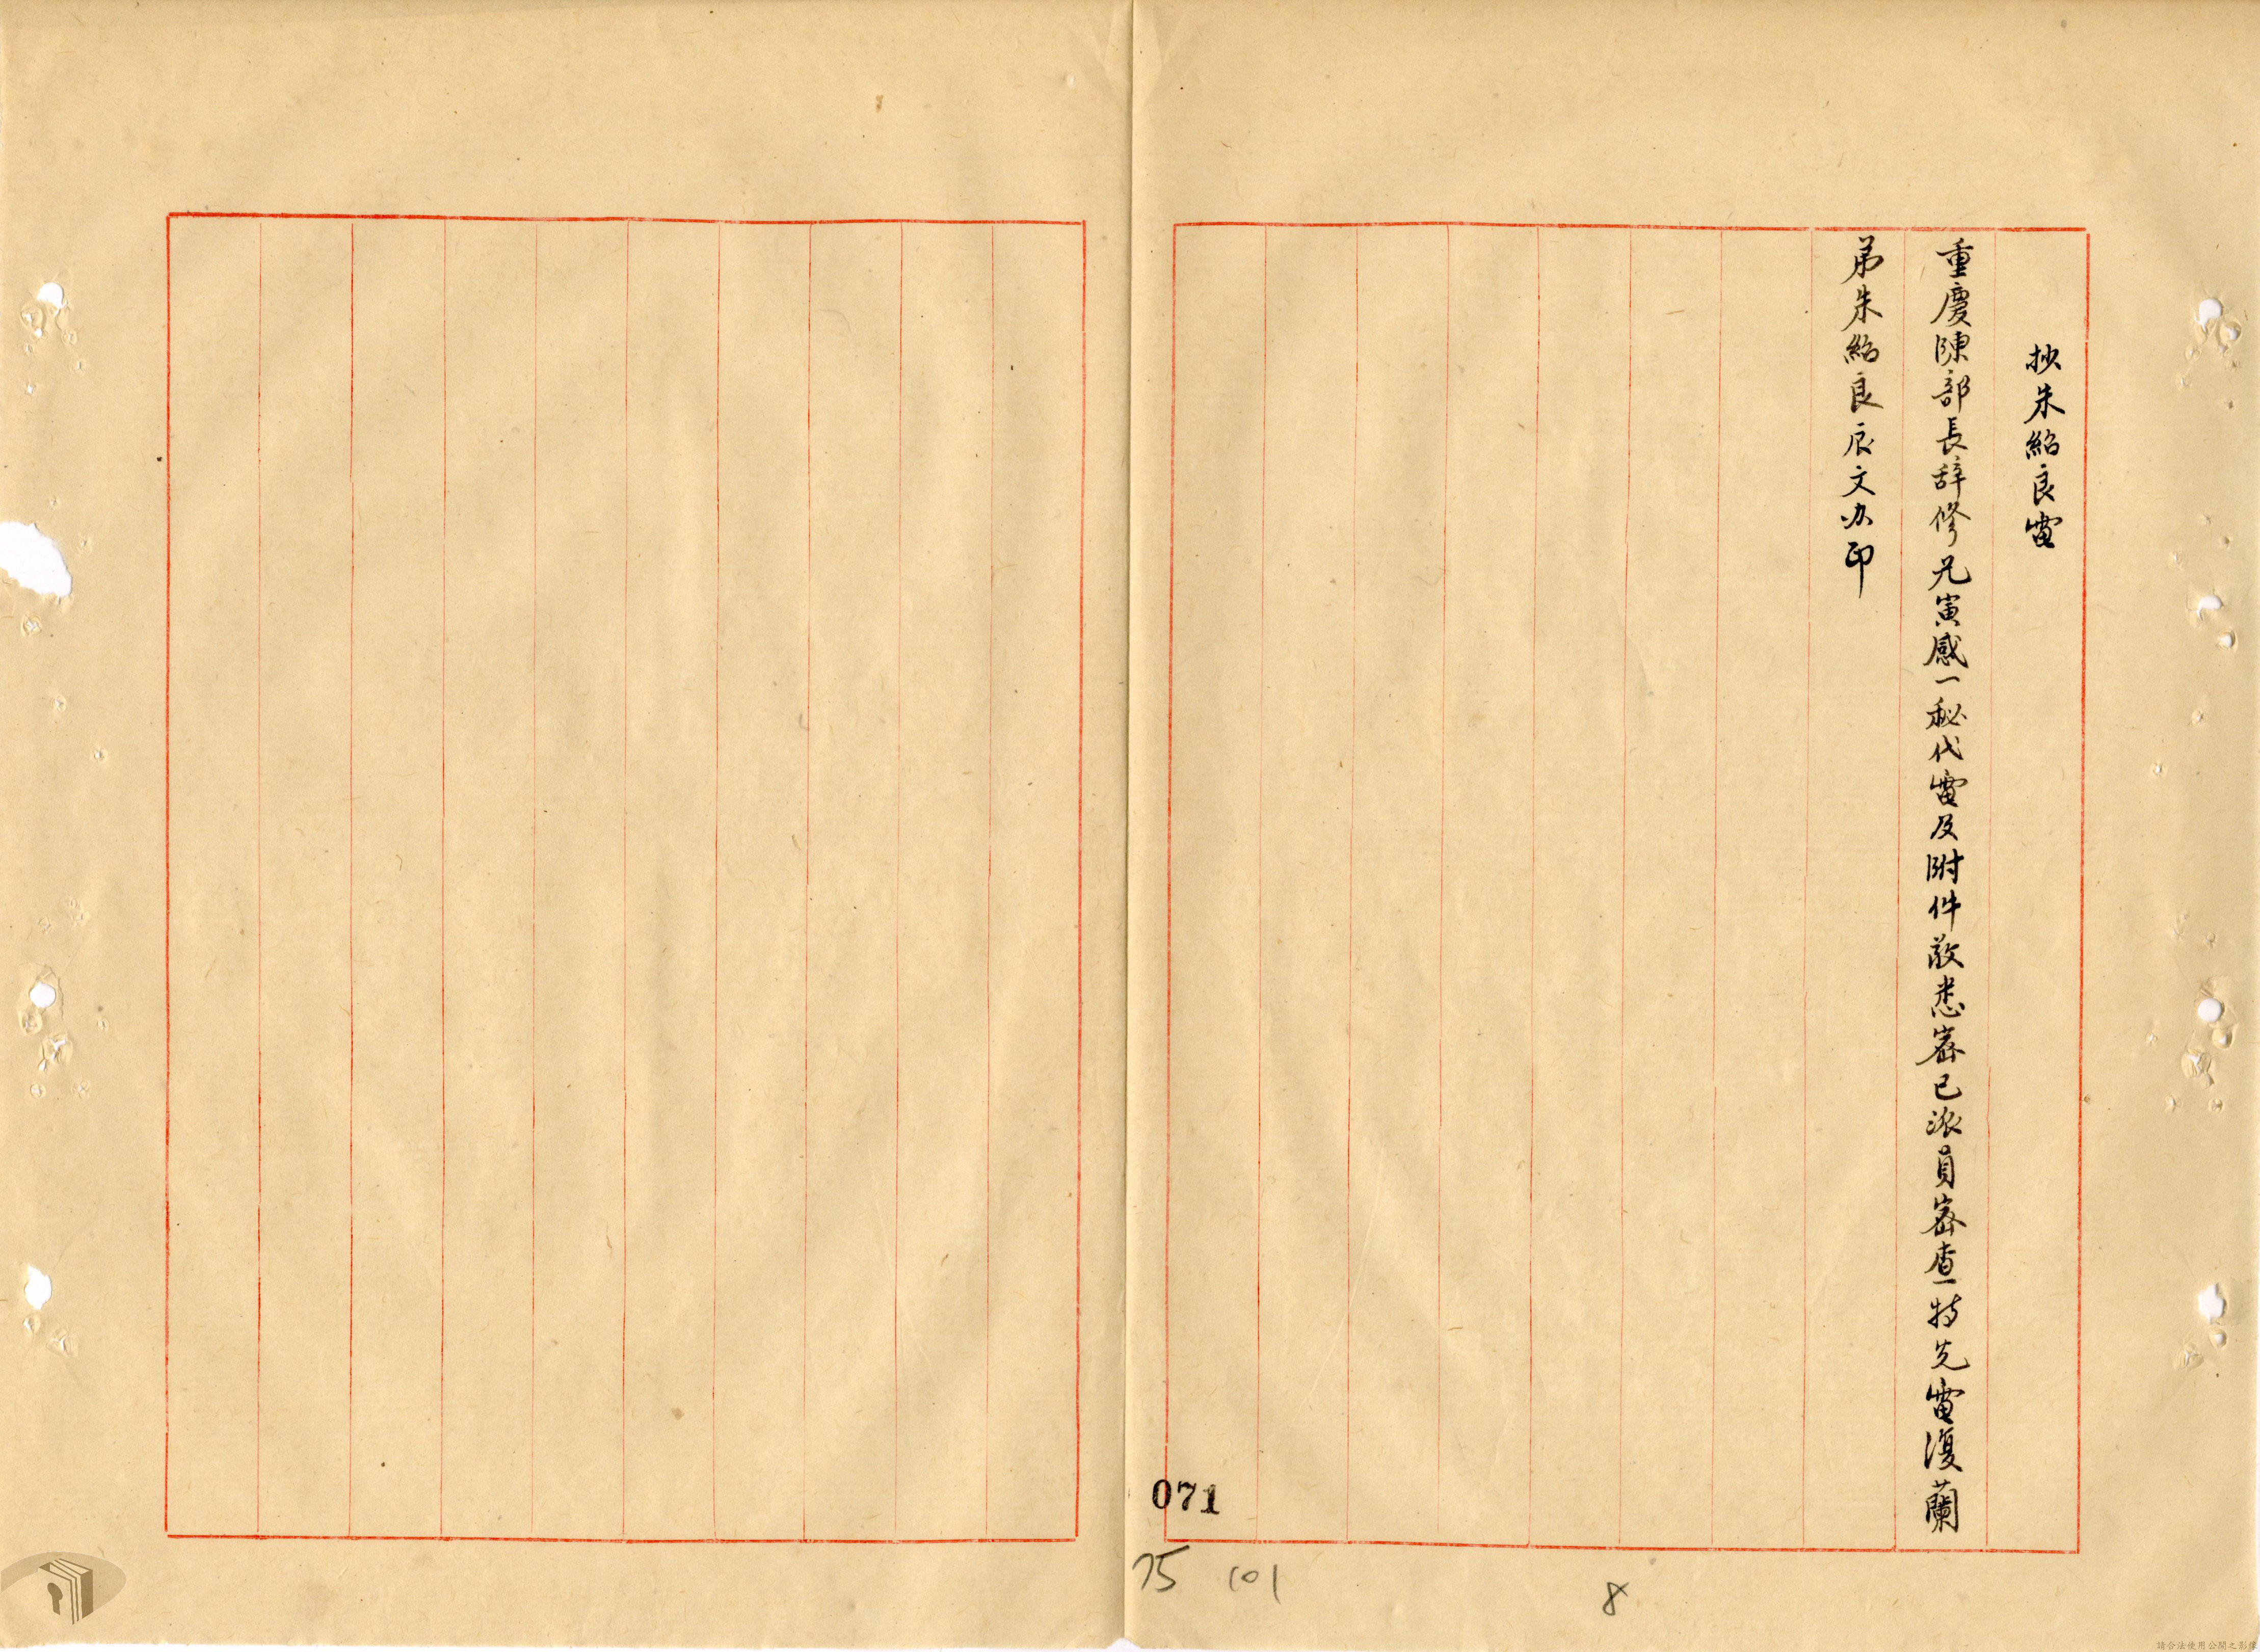 抄朱紹良電
重慶陳部長辭修兄寅感一秘代電及附件敬悉密已派員密查特先電復蘭
弟朱紹良辰文办印
071
75 101
8
請合法使用公開之影像